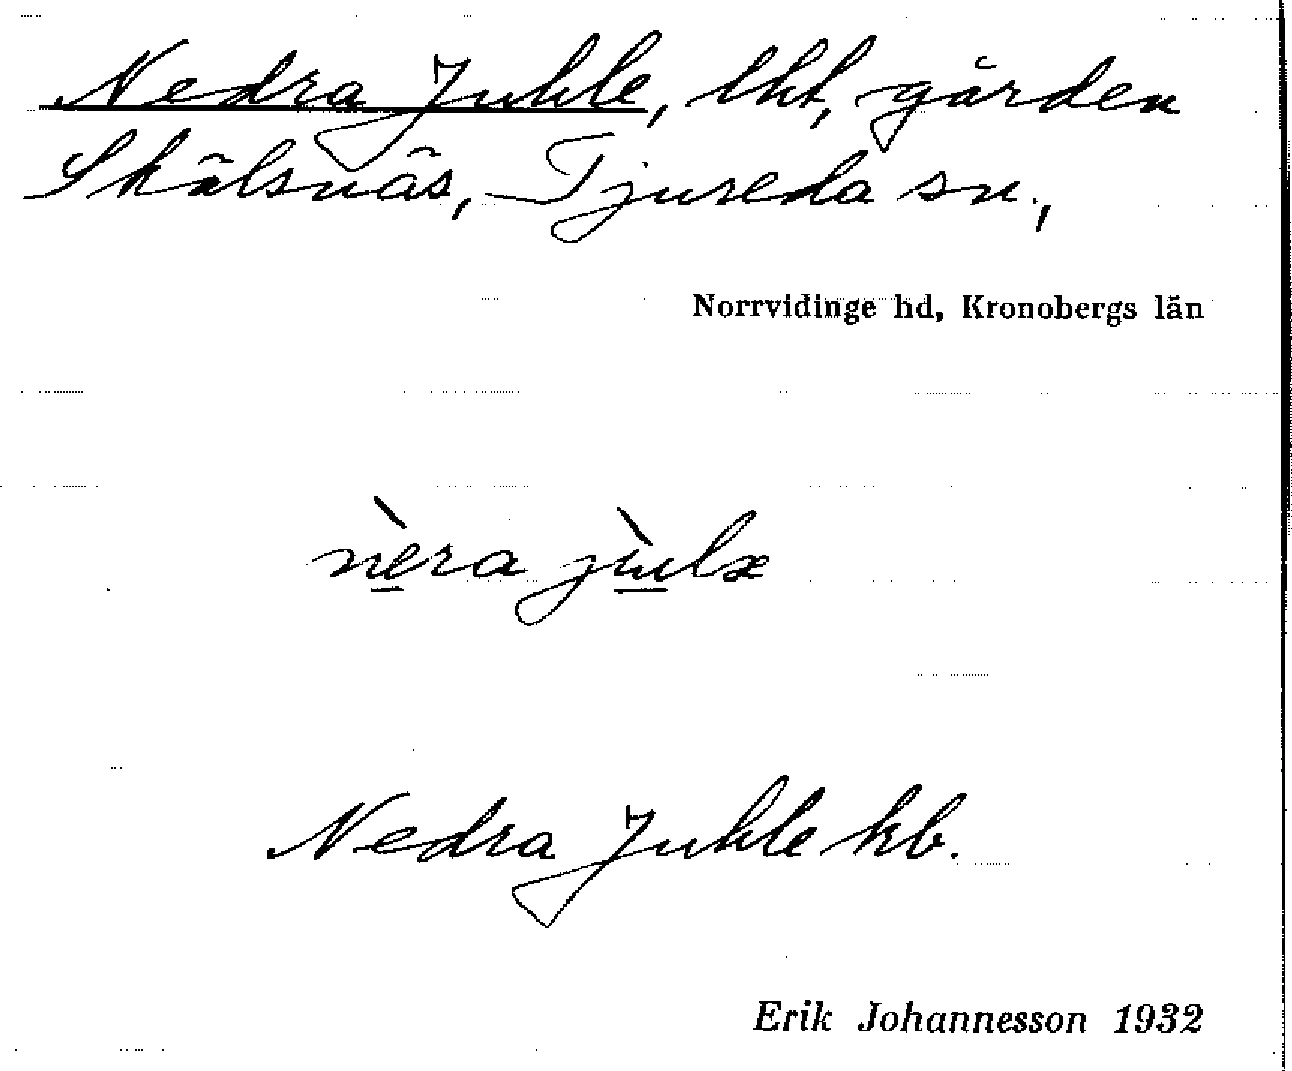 Nedra Juhle, lht, gården
Skälsnäs, Tjureda sn.,
Norrvidinge hd, Kronobergs län
nèra jùlæ
Nedra Juhle kb.
Erik Johannesson 1932